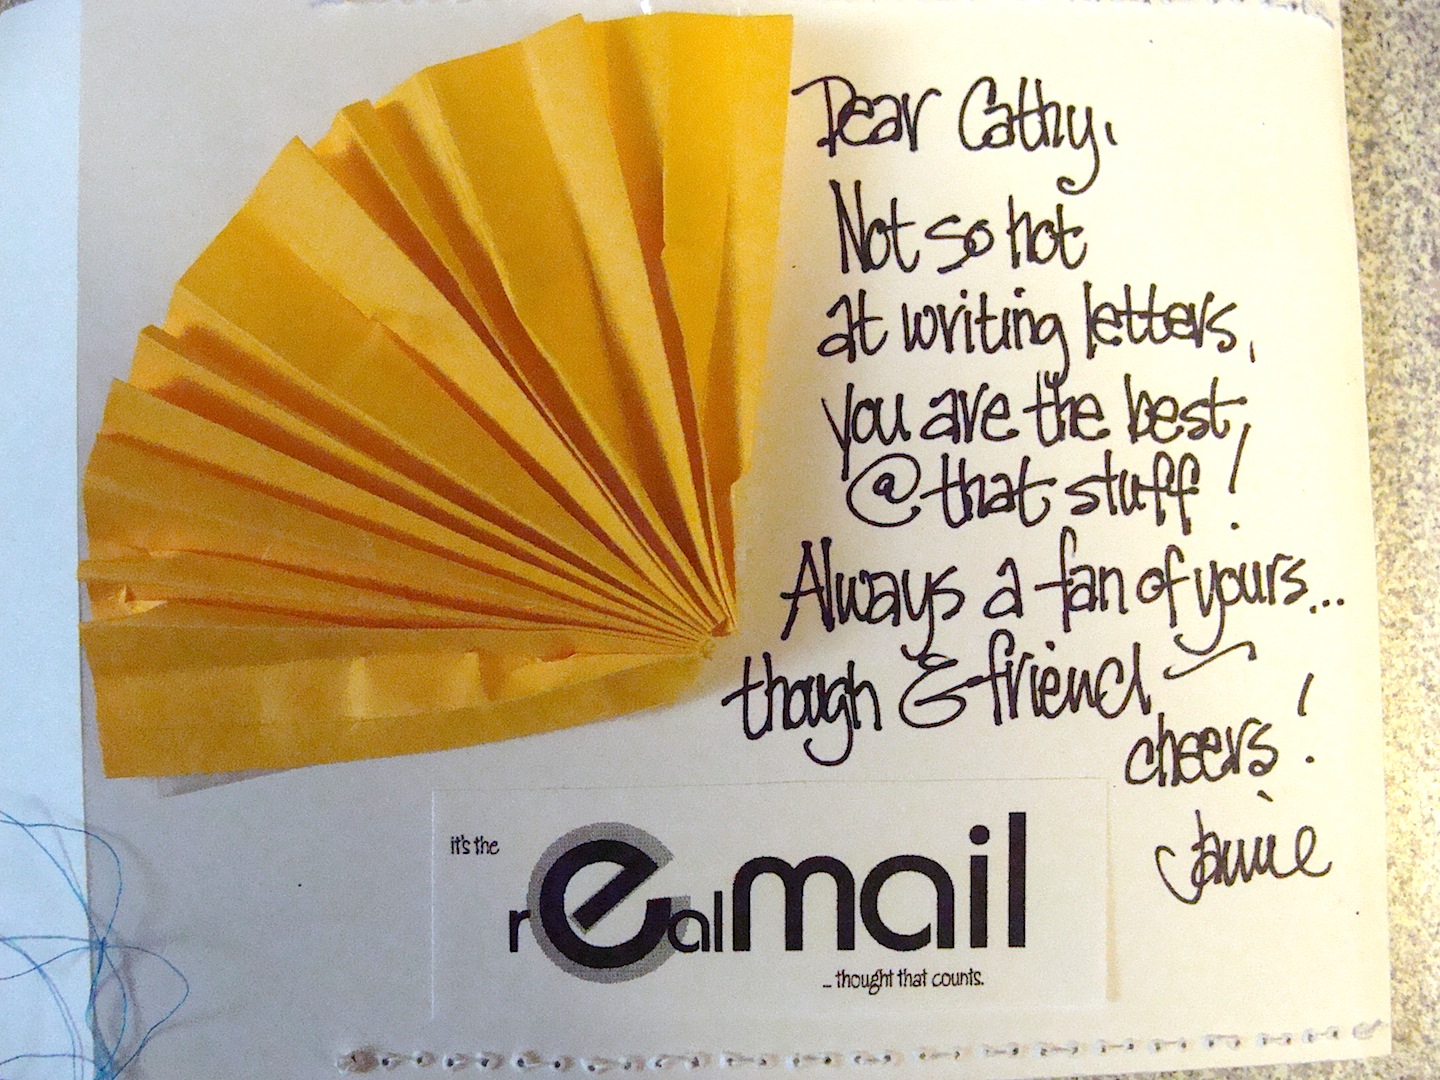 Dear Cathy,
Not so hot
at writing letters,
you are the best,
@ that stuff!
Always a fan of yours...
though & friend
cheers!
Jamie
it's the
realmail
... thought that counts.